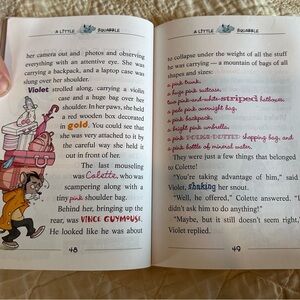 A LITTLE SQUABBLE
her camera out and photos and observing
everything with an attentive eye. She was
carrying a backpack, and a laptop case
was slung over her shoulder.
Violet strolled along, carrying a violin
case and a huge bag over her
shoulder. In her paws, she held
a red wooden box decorated
in gold. You could see that
she was very attached to it by
the careful way she held it
out in front of her.
The last mouseling
was Colette, who was
scampering along with a
tiny pink shoulder bag.
Behind her, bringing up the
rear, was VINCE GUYMOUSE.
He looked like he was about
48
A LITTLE SQUABBLE
to collapse under the weight of all the stuff
he was carrying — a mountain of bags of all
shapes and sizes:
a pink trunk,
a huge pink suitcase,
two pink-and-white-striped hatboxes,
a pale pink overnight bag,
a pink backpack,
a bright pink umbrella,
a pink shopping bag, and
a pink bottle of mineral water.
They were just a few things that belonged
to Colette!
"You're taking advantage of him," said
Violet, shaking her snout.
"Well, he offered," Colette answered. "I
didn't ask him to do anything!"
"Maybe, but it still doesn't seem right,"
Violet replied.
49